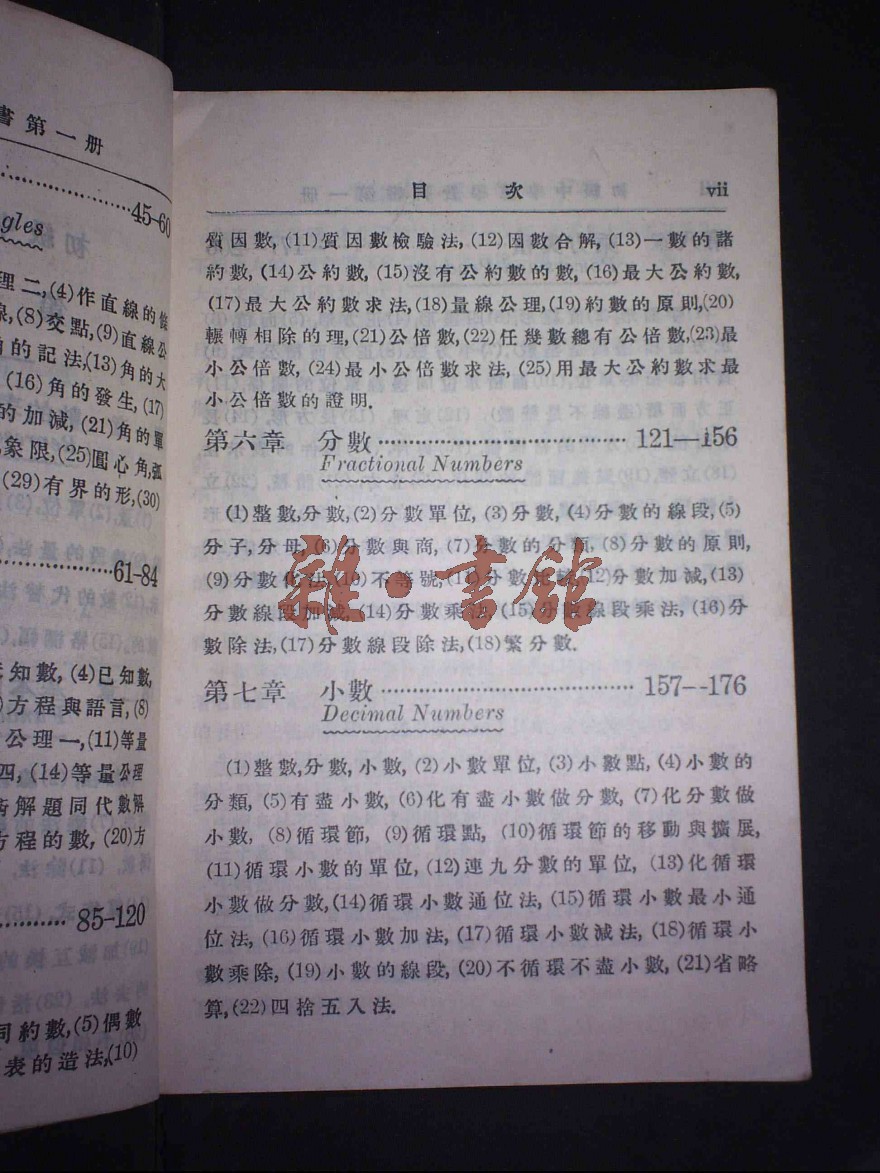 書第一册
45-60
gles
理二,(4)作直線的
線,(8)交點,(9)直線公
角的記法,(13)角的大
(16)角的發生,(17)
的加減,(21)角的單
象限,(25)圓心角,弧
(29)有界的形,(30)
61-84
知數,(4)已知數,
方程與語言,(8)
公理一,(11)等量
四,(14)等量公理
術解題同代數解
方程的數,(20)方
85-120
同約數,(5)偶數
表的造法,(10)
目 次 vii
質因數,(11)質因數檢驗法,(12)因數合解,(13)一數的諸
約數,(14)公約數,(15)沒有公約數的數,(16)最大公約數,
(17)最大公約數求法,(18)量線公理,(19)約數的原則,(20)
輾轉相除的理,(21)公倍數,(22)任幾數總有公倍數,(23)最
小公倍數,(24)最小公倍數求法,(25)用最大公約數求最
小公倍數的證明.
第六章 分數 121—156
Fractional Numbers
(1)整數,分數,(2)分數單位,(3)分數,(4)分數的線段,(5)
分子,分母,(6)分數與商,(7)分數的分類,(8)分數的原則,
(9)分數化法,(10)不等號,(11)分數定義,(12)分數加減,(13)
分數線段加減,(14)分數乘法,(15)分數線段乘法,(16)分
數除法,(17)分數線段除法,(18)繁分數.
雜·書館
第七章 小數 157--176
Decimal Numbers
(1)整數,分數,小數,(2)小數單位,(3)小數點,(4)小數的
分類,(5)有盡小數,(6)化有盡小數做分數,(7)化分數做
小數,(8)循環節,(9)循環點,(10)循環節的移動與擴展,
(11)循環小數的單位,(12)連九分數的單位,(13)化循環
小數做分數,(14)循環小數通位法,(15)循環小數最小通
位法,(16)循環小數加法,(17)循環小數減法,(18)循環小
數乘除,(19)小數的線段,(20)不循環不盡小數,(21)省略
算,(22)四捨五入法.